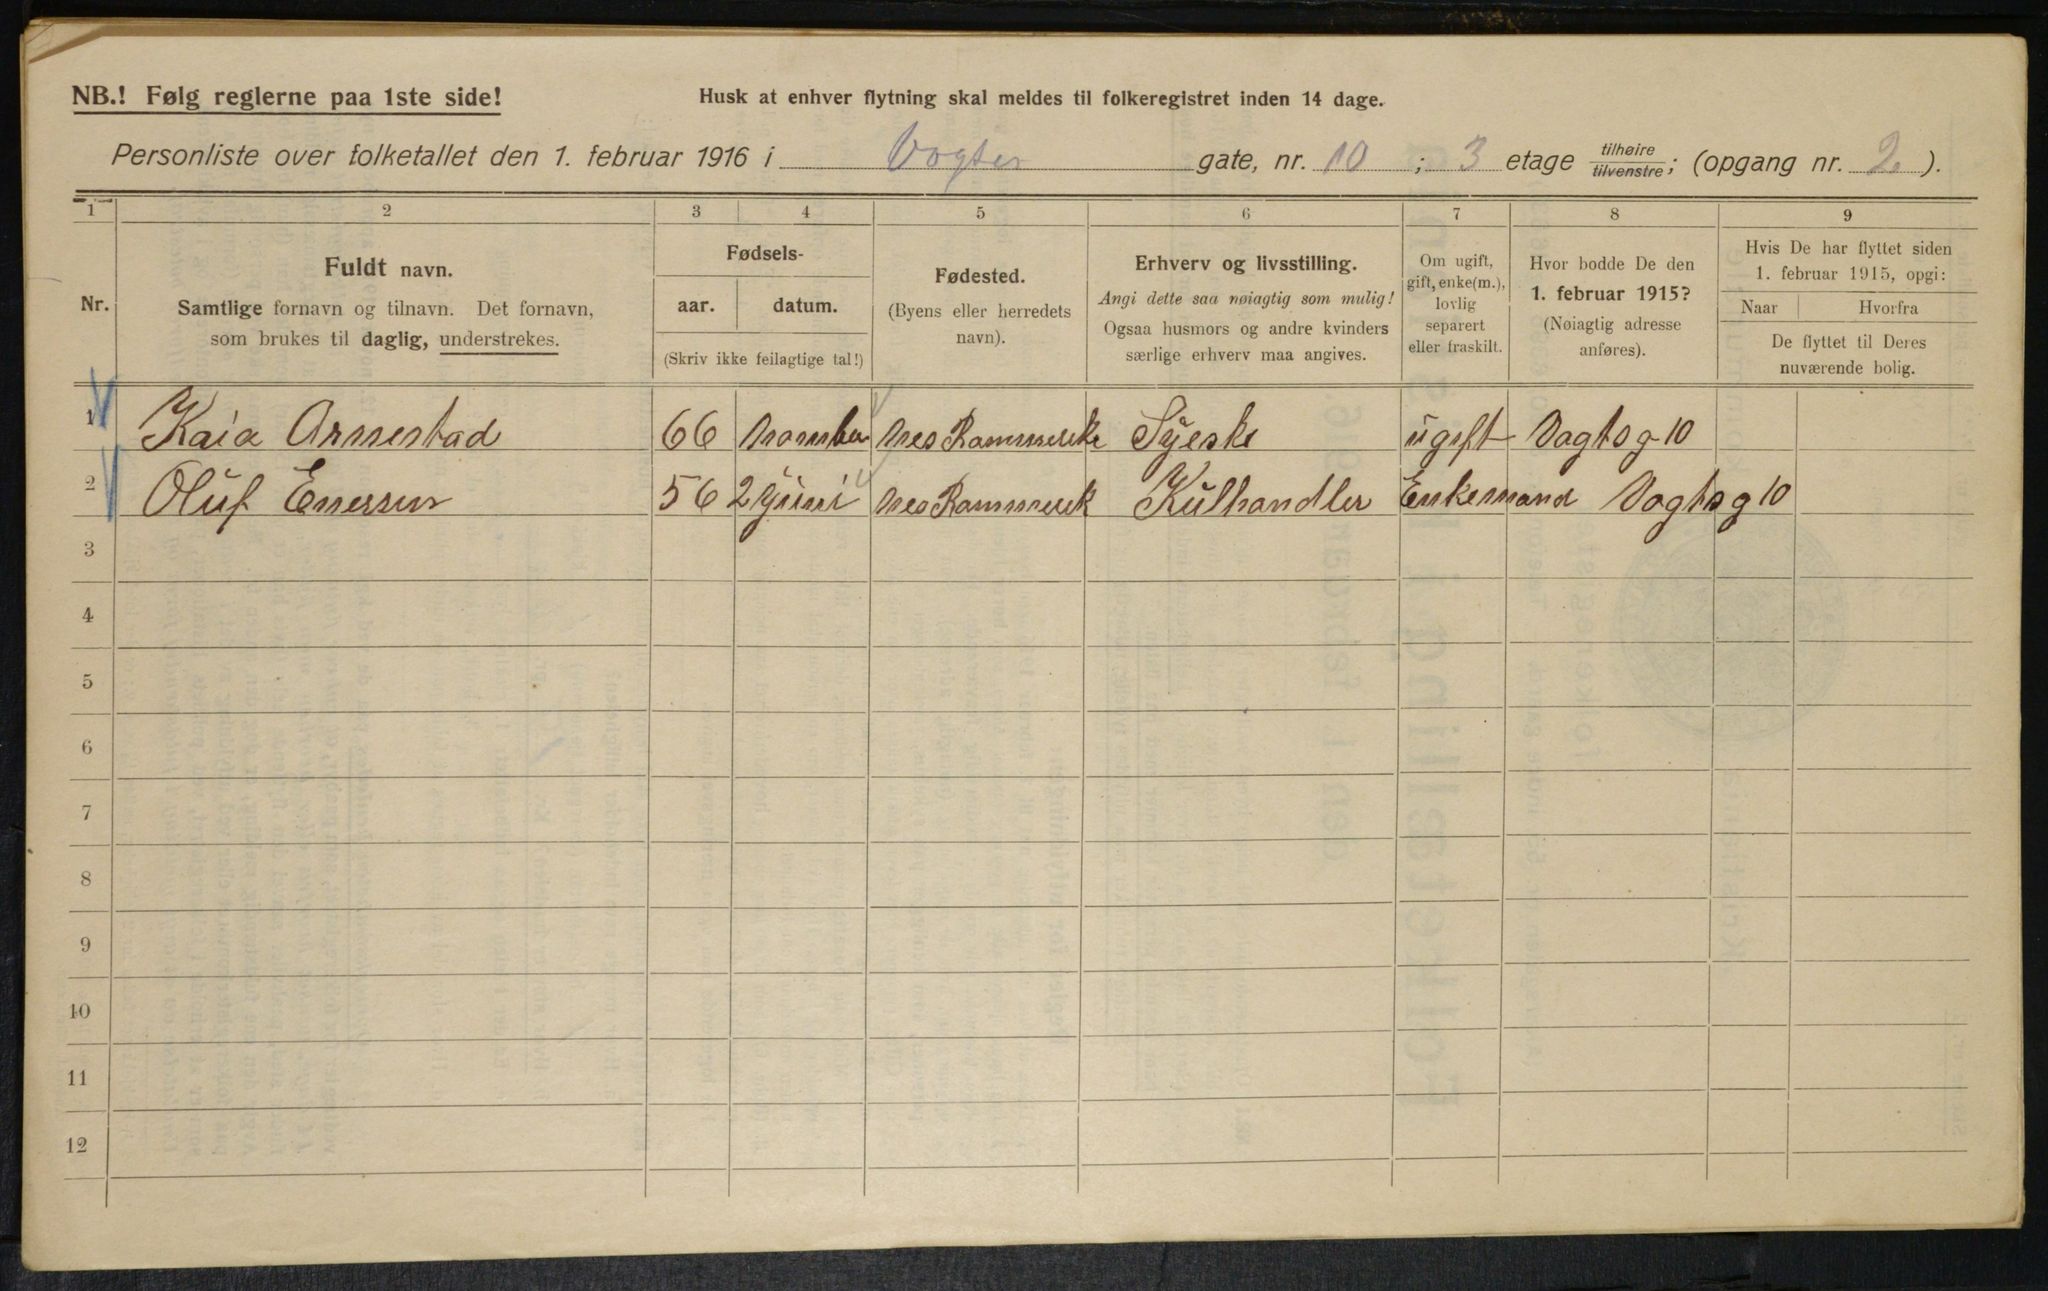 NB.! Følg reglerne paa 1ste side!
Husk at enhver flytning skal meldes til folkeregistret inden 14 dage.
Personliste over folketallet den 1. februar 1916 i Vogts gate, nr. 10; 3 etage tilhøire/tilvenstre; (opgang nr. 2).
1 2 3 4 5 6 7 8 9
Nr.
Fuldt navn.
Samtlige fornavn og tilnavn. Det fornavn,
som brukes til daglig, understrekes.
Fødsels-
aar. datum.
(Skriv ikke feilagtige tal!)
Fødested.
(Byens eller herredets
navn).
Erhverv og livsstilling.
Angi dette saa nøiagtig som mulig!
Ogsaa husmors og andre kvinders
særlige erhverv maa angives.
Om ugift,
gift, enke(m.),
lovlig
separert
eller fraskilt.
Hvor bodde De den
1. februar 1915?
(Nøiagtig adresse
anføres).
Hvis De har flyttet siden
1. februar 1915, opgi:
Naar Hvorfra
De flyttet til Deres
nuværende bolig.
1 Kaia Arnestad 66 Nes Rommerike Syeske ugift Vogtsg 10
2 Oluf 56 2 Juni Nes Rommerik Kulhandler Enkemand Vogtsg 10
3
4
5
6
7
8
9
10
11
12